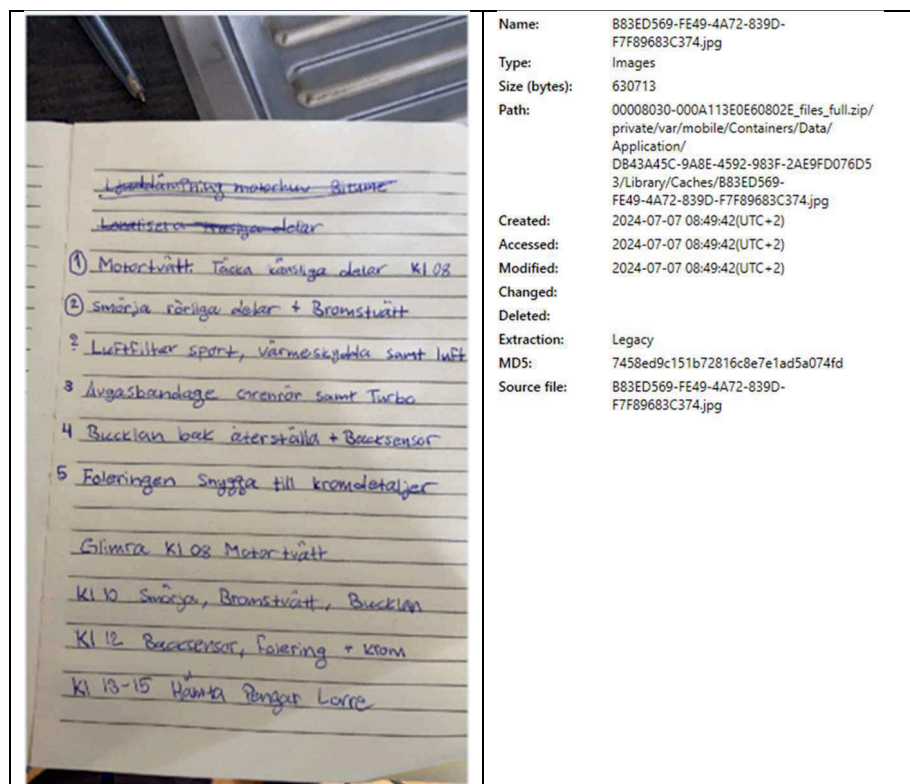 Ljuddämpning motorhuv Bitume
Lokalisera trasiga delar
① Motortvätt. Täcka känsliga delar Kl 08
② Smörja rörliga delar + Bromstvätt
2 Luftfilter sport, värmeskydda samt luft
3 Avgasbandage Grenrör samt Turbo
4 Bucklan bak återställa + Backsensor
5 Foleringen Snygga till kromdetaljer
Glimra Kl 08 Motortvätt
Kl 10 Smörja, Bromstvätt, Bucklan
Kl 12 Backsensor, folering + krom
Kl 13-15 Hämta Pengar Lorre
Name: B83ED569-FE49-4A72-839D-
F7F89683C374.jpg
Type: Images
Size (bytes): 630713
Path: 00008030-000A113E0E60802E_files_full.zip/
private/var/mobile/Containers/Data/
Application/
DB43A45C-9A8E-4592-983F-2AE9FD076D5
3/Library/Caches/B83ED569-
FE49-4A72-839D-F7F89683C374.jpg
Created: 2024-07-07 08:49:42(UTC+2)
Accessed: 2024-07-07 08:49:42(UTC+2)
Modified: 2024-07-07 08:49:42(UTC+2)
Changed:
Deleted:
Extraction: Legacy
MD5: 7458ed9c151b72816c8e7e1ad5a074fd
Source file: B83ED569-FE49-4A72-839D-
F7F89683C374.jpg